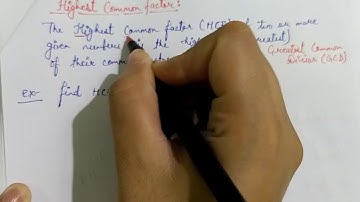 Highest Common factor:
The Highest Common factor (HCF) of two or more
given numbers is the
of their
Greatest Common
Divisor (GCD)
ex- find HC